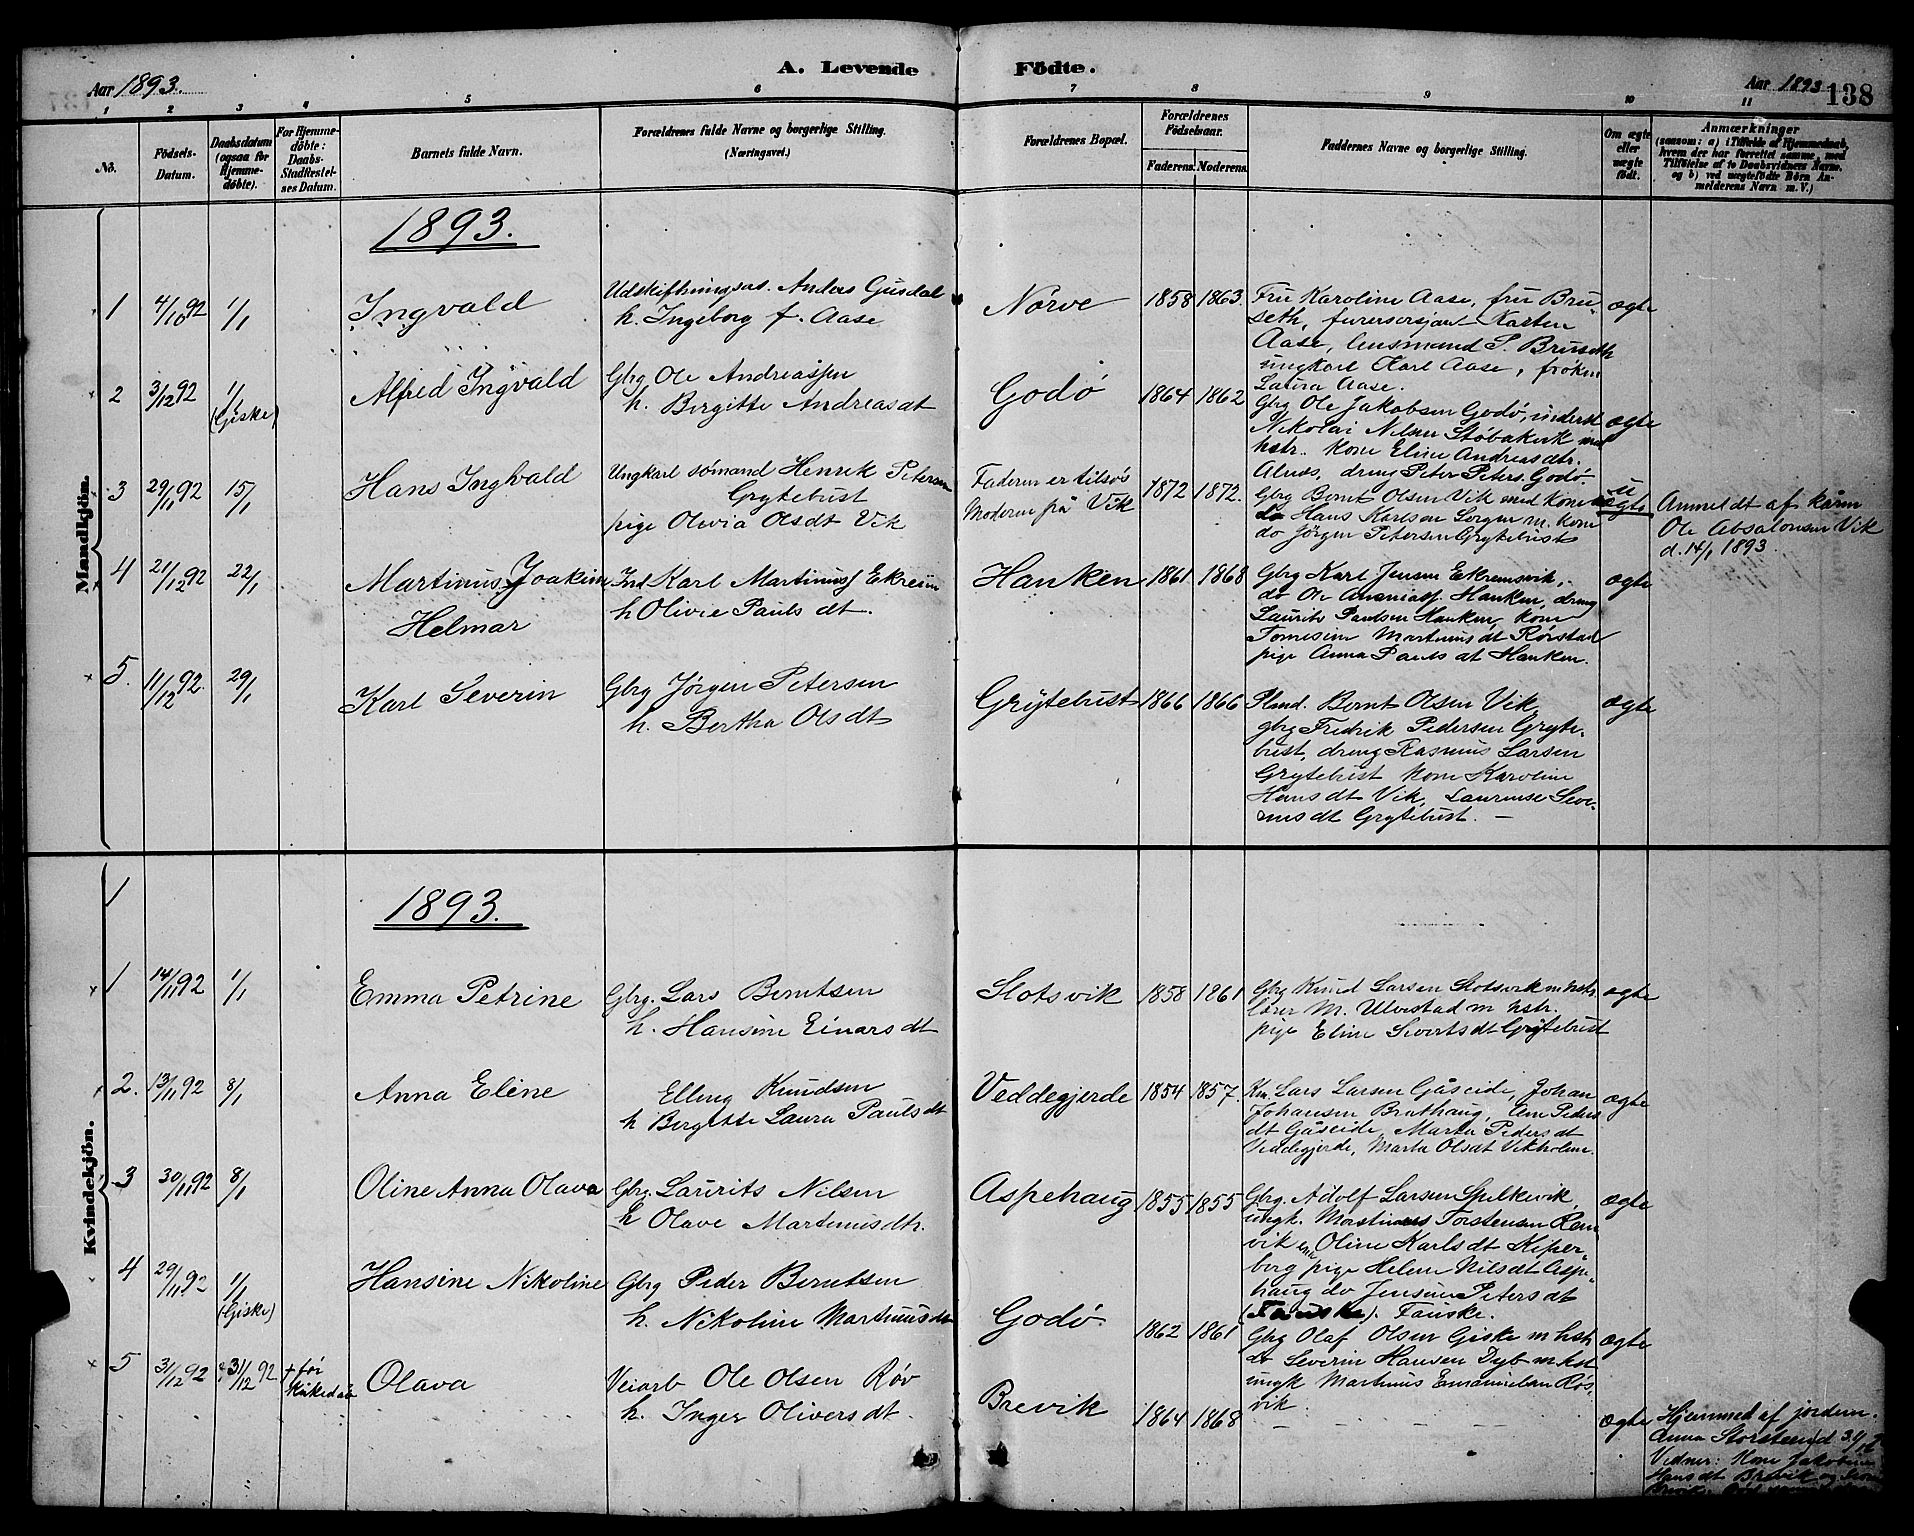 Aar 1893.
A. Levende Födte.
Aar 1893
138
1 2 3 4 5 6 7 8 9 10 11
No.
Födsels-Datum.
Daabsdatum (ogsaa for Hjemme-döbte).
For Hjemme-döbte: Daabs-Stadfæstel-ses Datum.
Barnets fulde Navn.
Forældrenes fulde Navne og borgerlige Stilling. (Næringsvei.)
Forældrenes Bopæl.
Forældrenes Födselsaar.
Faderens. Moderens.
Faddernes Navne og borgerlige Stilling.
Om ægte eller uægte födt.
Anmærkninger
(saasom: a) i Tilfælde af Hjemmedaab, hvem der har forrettet samme, med Tilföielse af to Daabsvidners Navne, og b) ved uægtefödte Börn An-melderens Navn m. V.)
Mandkjön.
1893.
1 4/10 92 1/1 Ingvald
Udskiftningsas. Anders Gusdal
h. Ingeborg f. Aase
Nørve 1858 1863.
Fru Karoline Aase, fru Bru-
seth, Karsten
Aase, lensmand S. Bruseth
ungkarl Karl Aase, frøken
Laura Aase.
ægte
2 3/12 92 1/1 (Giske) Alfred Ingvald
Gbrg Ole Andreassen
h. Bergitte Andreasdt
Godø 1864 1862
Gbrg Ole Jakobsen Godø, inderst
Nikolai Nilsen Støbakvik med
hstr. kone Eline Andreasdtr.
Alnes, dreng Peter Peters. Godø.
ægte
3 29/11 92 15/1 Hans Ingvald
Ungkarl sømand Henrik Petersen
Grytebust
pige Olivia Olsdt Vik
Faderen er tilsøs
Moderen på Vik
1872 1872.
Gbrg Bernt Olsen Vik med kone
do Hans Karlsen m. kone
do Jörgen Petersen Grytebust
uægte
Anmeldt af kårm
Ole Absalonsen Vik
d. 14/1 1893.
4 21/12 92 22/1 Martinus Joakim
Helmar
Ind Karl Martinus Ekreim
h Olivie Paulsdt.
Hanken 1861 1868
Gbrg Karl Jensen Ekremsvik,
do Ole Ananiass. Hanken, dreng
Laurits Paulsen Hanken, kone
Tomesine Martinusdt Rørstad
pige Anna Paulsdt Hanken.
ægte
5. 11/12 92. 29/1 Karl Severin
Gbrg Jörgen Petersen
h. Bertha Olsdt
Grytebust 1866 1866
Bernt Olsen Vik,
gbrg Fredrik Pedersen Gryte-
bust, dreng Rasmus Larsen
Grytebust kone Karoline
Hansdt Vik, Laurense Seve-
rinsdt Grytebust. —
ægte
Kvindekjön.
1
1893.
1 14/11 92 1/1 Emma Petrine
Gbrg. Lars Berntsen
h. Hansine Einarsdt
Slotsvik 1858 1861
Gbrg Knud Larsen Slotsvik m hstr.
lærer M. Ulvestad m hstr.
pige Eline Sivertsdt Grytebust
ægte
2. 13/11 92 8/1 Anna Eline
Elling Knudsen
h Bergitte Laura Paulsdt
Veddegjerde 1854 1857.
Km. Lars Larsen Gåseide, Johan
Johansen Brathaug, Peders
dt Gåseide, Marta Pedersdt
Veddegjerde, Marta Olsdt Vikholm.
ægte
3 30/11 92 8/1 Oline Anna Olava
Gbrg. Laurits Nilsen
h Olave Martinusdtr.
Aspehaug 1855 1855
Gbrg. Adolf Larsen Spilkevik,
ungk. Martinus Torstensen Ren
vik Oline Karlsdt Kiper-
berg pige Helene Nilsdt Aspe-
haug do Jensine Petersdt
(Fauske). Fauske.
ægte
4 29/11 92 1/1 (Giske) Hansine Nikoline
Gbrg Peder Berntsen
h. Nikoline Martinusdt
Godø. 1862 1861
Gbrg Olaf Olsen Giske m hstr
do Severin Hansen Dyb m hst
ungk Martinus Emanuelsen Røs-
vik.
ægte
5 31/12 92 31/12 92 + før
Olava
Veiarb Ole Olsen Røv
h. Inger Oliversdt.
Brevik 1864 1868
— — — — —
ægte
Hjemmed af jordem.
Anna Storsteen d 31/12
Vidner: Kone Jakobine
Hansdt Brevik og